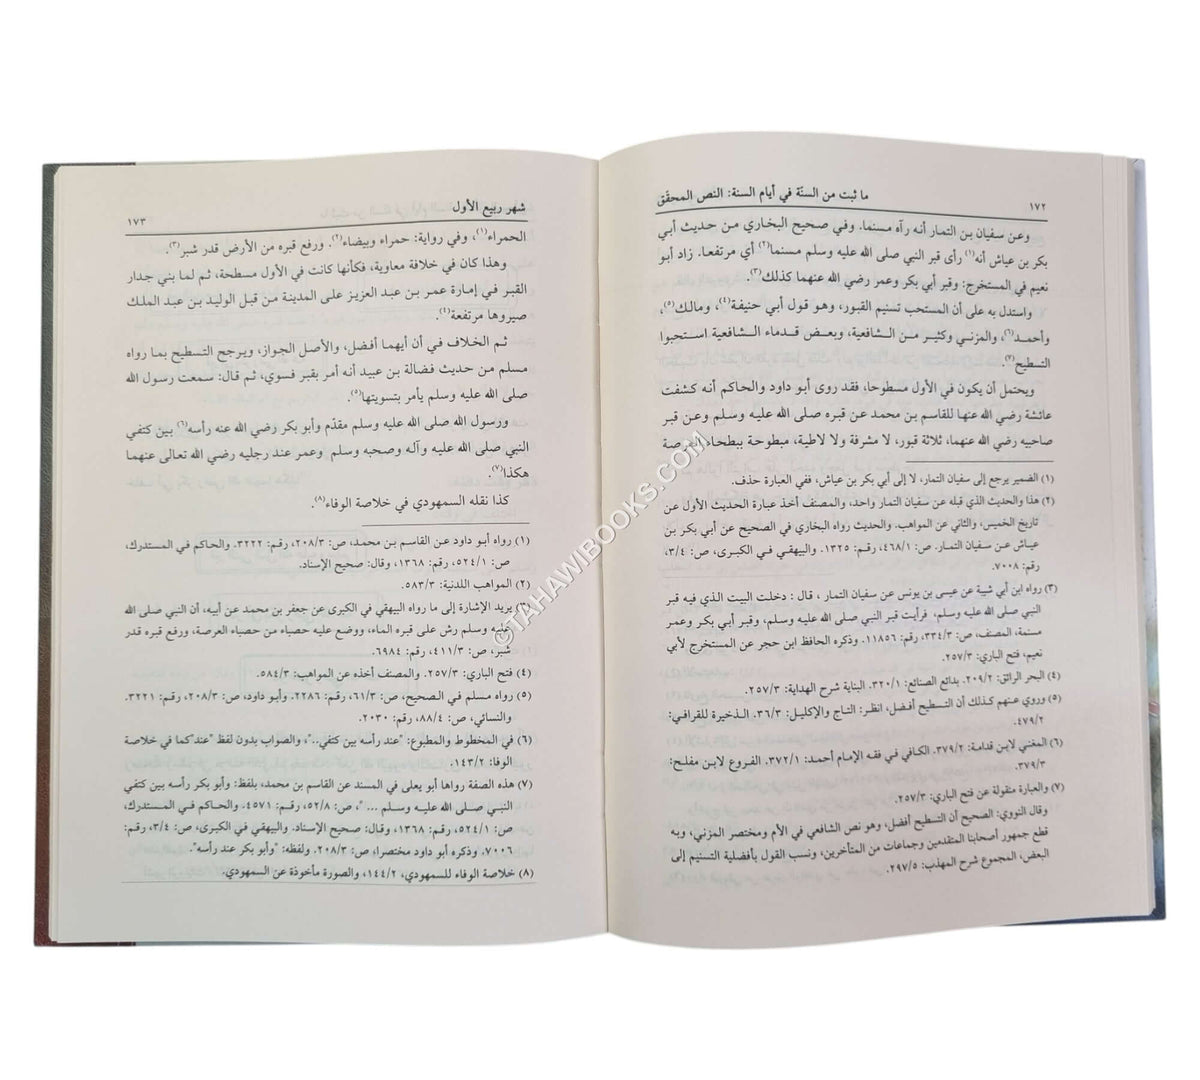 ١٧٢
ما ثبت من السنّة في أيام السنة: النص المحقّق
وعن سفيان بن التمار أنه رآه مسنما. وفي صحيح البخاري من حديث أبي
بكر بن عياش أنه(١) رأى قبر النبي صلى الله عليه وسلم مسنما(٢) أي مرتفعا. زاد أبو
نعيم في المستخرج: وقبر أبي بكر وعمر رضي الله عنهما كذلك(٣).
واستدل به على أن المستحب تسنيم القبور، وهو قول أبي حنيفة(٤)، ومالك(٥)،
وأحمد(٦)، والمزني وكثير من الشافعية، وبعض قدماء الشافعية استحبوا
التسطيح(٧).
ويحتمل أن يكون في الأول مسطوحا، فقد روى أبو داود والحاكم أنه كشفت
عائشة رضي الله عنها للقاسم بن محمد عن قبره صلى الله عليه وسلم وعن قبر
صاحبيه رضي الله عنهما، ثلاثة قبور، لا مشرفة ولا لاطية، مبطوحة ببطحاء العرصة
(١) الضمير يرجع إلى سفيان التمار، لا إلى أبي بكر بن عياش، ففي العبارة حذف.
(٢) هذا والحديث الذي قبله عن سفيان التمار واحد، والمصنف أخذ عبارة الحديث الأول عن
تاريخ الخميس، والثاني عن المواهب. والحديث رواه البخاري في الصحيح عن أبي بكر بن
عياش عن سفيان التمار. ص: ٤٦٨/١، رقم: ١٣٢٥. والبيهقي في الكبرى، ص: ٣/٤،
رقم: ٧٠٠٨.
(٣) رواه ابن أبي شيبة عن عيسى بن يونس عن سفيان التمار ، قال : دخلت البيت الذي فيه قبر
النبي صلى الله عليه وسلم، فرأيت قبر النبي صلى الله عليه وسلم، وقبر أبي بكر وعمر
مسنمة، المصنف، ص: ٣٣٤/٣، رقم: ١١٨٥٦. وذكره الحافظ ابن حجر عن المستخرج لأبي
نعيم، فتح الباري: ٢٥٧/٣.
(٤) البحر الرائق: ٢٠٩/٢. بدائع الصنائع: ٣٢٠/١. البناية شرح الهداية: ٢٥٧/٣.
(٥) وروي عنهم كذلك أن التسطيح أفضل، انظر: التاج والإكليل: ٣٦/٣. الذخيرة للقرافي:
٤٧٩/٢.
(٦) المغني لابن قدامة: ٣٧٩/٢. الكافي في فقه الإمام أحمد: ٣٧٢/١. الفروع لابن مفلح:
٣٧٩/٣.
(٧) والعبارة منقولة عن فتح الباري: ٢٥٧/٣.
وقال النووي: الصحيح أن التسطيح أفضل، وهو نص الشافعي في الأم ومختصر المزني، وبه
قطع جمهور أصحابنا المتقدمين وجماعات من المتأخرين، ونسب القول بأفضلية التسنيم إلى
البعض، المجموع شرح المهذب: ٢٩٧/٥.
شهر ربيع الأول
١٧٣
الحمراء(١)، وفي رواية: حمراء وبيضاء(٢). ورفع قبره من الأرض قدر شبر(٣).
وهذا كان في خلافة معاوية، فكأنها كانت في الأول مسطحة، ثم لما بني جدار
القبر في إمارة عمر بن عبد العزيز على المدينة من قبل الوليد بن عبد الملك
صيروها مرتفعة(٤).
ثم الخلاف في أن أيهما أفضل، والأصل الجواز، ويرجح التسطيح بما رواه
مسلم من حديث فضالة بن عبيد أنه أمر بقبر فسوي، ثم قال: سمعت رسول الله
صلى الله عليه وسلم يأمر بتسويتها(٥).
ورسول الله صلى الله عليه وسلم مقدّم وأبو بكر رضي الله عنه رأسه(٦) بين كتفي
النبي صلى الله عليه وآله وصحبه وسلم وعمر عند رجليه رضي الله تعالى عنهما
هكذا(٧)
كذا نقله السمهودي في خلاصة الوفاء(٨).
(١) رواه أبو داود عن القاسم بن محمد، ص: ٢٠٨/٣، رقم: ٣٢٢٢. والحاكم في المستدرك،
ص: ٥٢٤/١، رقم: ١٣٦٨، وقال: صحيح الإسناد.
(٢) المواهب اللدنية: ٥٨٣/٣.
(٣) يريد الإشارة إلى ما رواه البيهقي في الكبرى عن جعفر بن محمد عن أبيه، أن النبي صلى الله
عليه وسلم رش على قبره الماء، ووضع عليه حصباء من حصباء العرصة، ورفع قبره قدر
شبر، ص: ٤١١/٣، رقم: ٦٩٨٤.
(٤) فتح الباري: ٢٥٧/٣. والمصنف أخذه عن المواهب: ٥٨٤/٣.
(٥) رواه مسلم في الصحيح، ص: ٦١/٣، رقم: ٢٢٨٦. وأبو داود، ص: ٢٠٨/٣، رقم: ٣٢٢١.
والنسائي، ص: ٨٨/٤، رقم: ٢٠٣٠.
(٦) في المخطوط والمطبوع: "عند رأسه بين كتفي..."، والصواب بدون لفظ "عند"كما في خلاصة
الوفا: ١٤٣/٢.
(٧) هذه الصفة رواها أبو يعلى في المسند عن القاسم بن محمد، بلفظ: وأبو بكر رأسه بين كتفي
النبي صلى الله عليه وسلم ... "، ص: ٥٢/٨، رقم: ٤٥٧١. والحاكم في المستدرك،
ص: ٥٢٤/١، رقم: ١٣٦٨، وقال: صحيح الإسناد. والبيهقي في الكبرى، ص: ٣/٤، رقم:
٧٠٠٦. وذكره أبو داود مختصرا، ص: ٢٠٨/٣. ولفظه: "وأبو بكر عند رأسه".
(٨) خلاصة الوفاء للسمهودي، ١٤٤/٢، والصورة مأخوذة عن السمهودي.
©TAHAWIBOOKS.COM